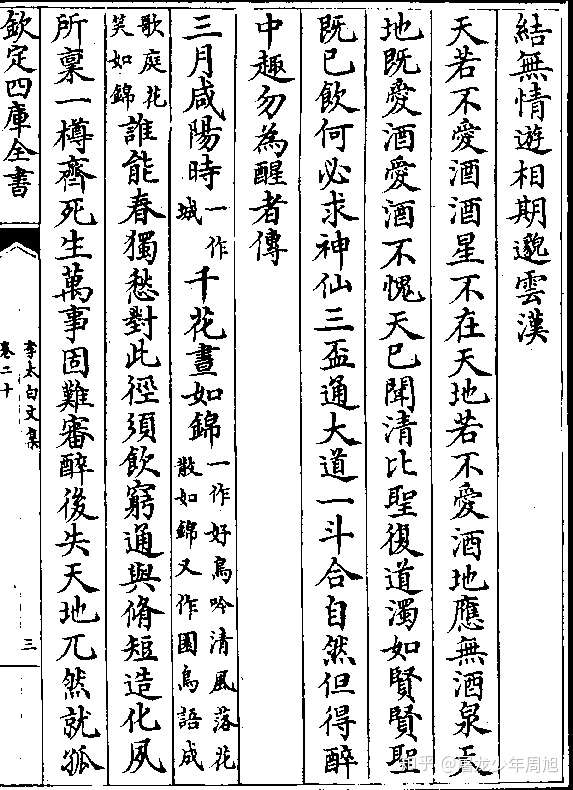 結無情遊相期邈雲漢
天若不愛酒酒星不在天地若不愛酒地應無酒泉天
地既愛酒愛酒不愧天已聞清比聖復道濁如賢賢聖
既已飲何必求神仙三盃通大道一斗合自然但得醉
中趣勿為醒者傳
三月咸陽時一作城千花晝如錦一作好鳥吟清風落花散如錦又作園鳥語成
歌庭花笑如錦誰能春獨愁對此徑須飲窮通與脩短造化夙
所稟一樽齊死生萬事固難審醉後失天地兀然就孤
欽定四庫全書
李太白文集
卷二十
三
知乎 @喜龙少年周旭